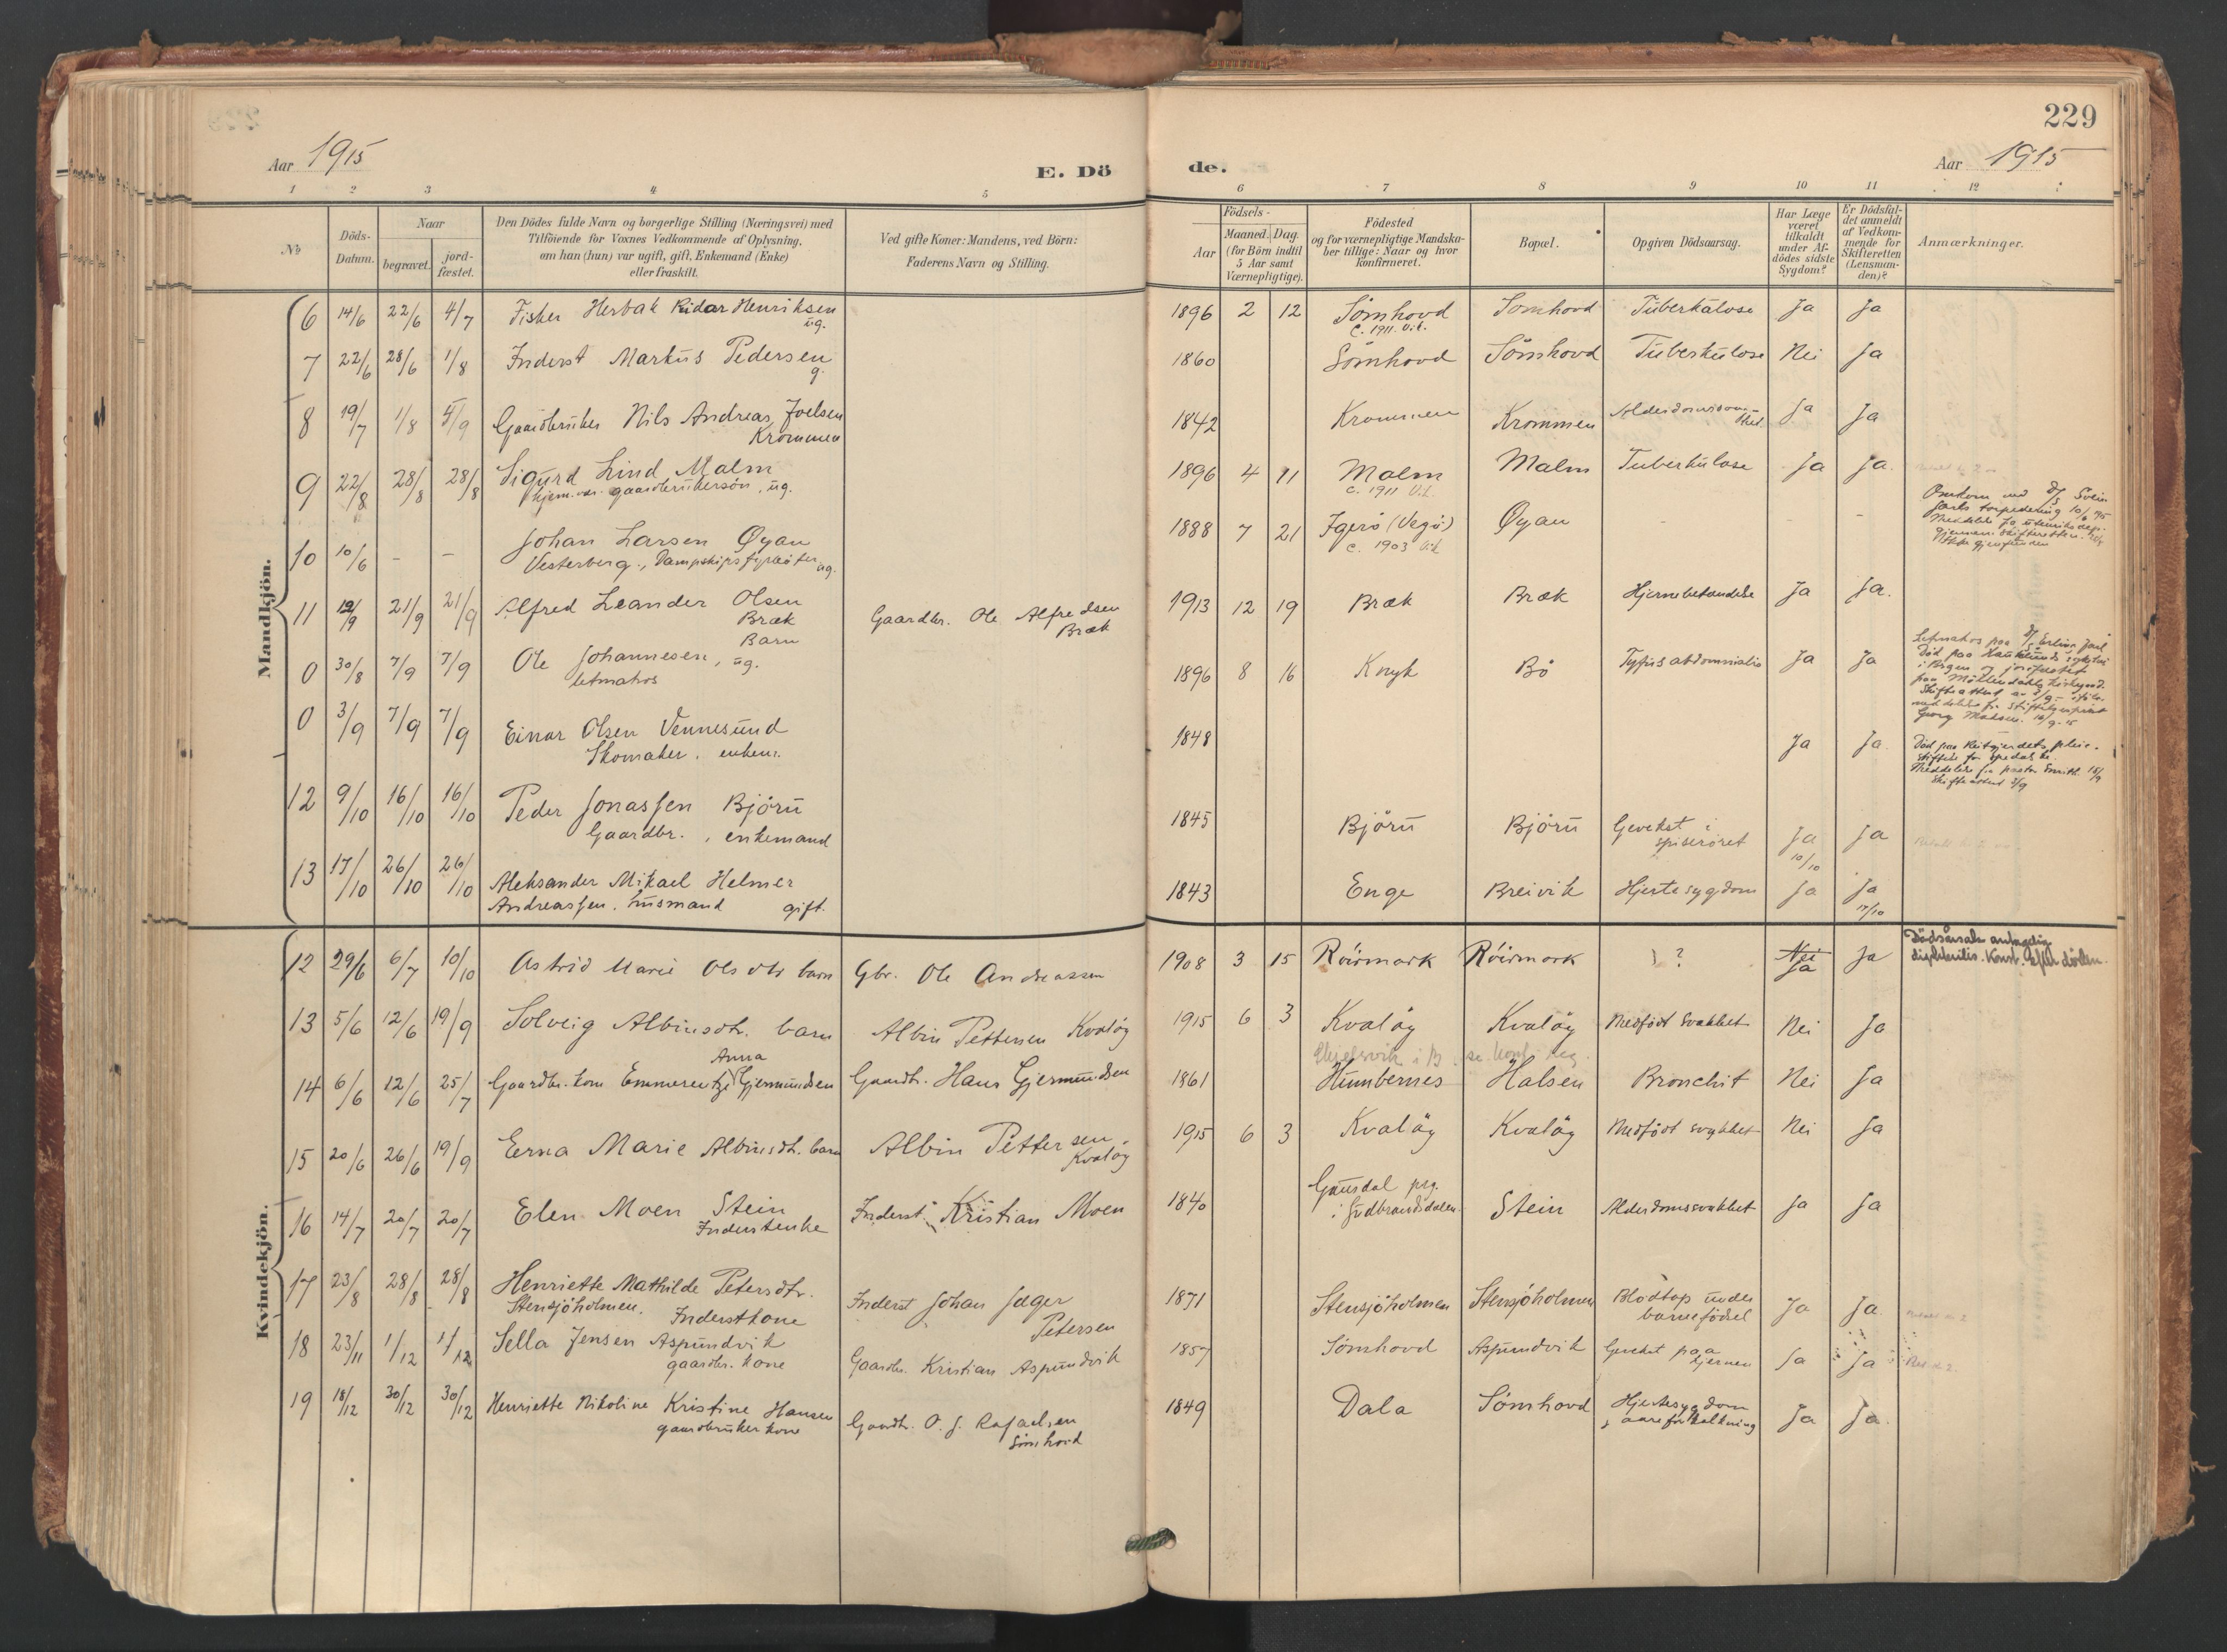 229
Aar 1915
E. Dö
de.
Aar 1915
1 2 3 4 5 6 7 8 9 10 11 12
No
Döds-
Datum.
Naar
begravet.
jord-
fæstet.
Den Dödes fulde Navn og borgerlige Stilling (Næringsvei) med
Tilföiende for Voxnes Vedkommende af Oplysning,
om han (hun) var ugift, gift, Enkemand (Enke)
eller fraskilt.
Ved gifte Koner: Mandens, ved Börn:
Faderens Navn og Stilling.
Födsels-
Aar
Maaned. Dag.
(for Börn indtil
5 Aar samt
Værnepligtige).
Födested
og for værnepligtige Mandska-
ber tillige: Naar og hvor
konfirmeret.
Bopæl.
Opgiven Dödsaarsag.
Har Læge
været
tilkaldt
under Af-
dödes sidste
Sygdom?
Er Dödsfal-
det anmeldt
af Vedkom-
mende for
Skifteretten
(Lensman-
den)?
Anmærkninger.
Mandkjön.
6 14/6 22/6 4/7 Fisker Herbak Reidar Henriksen 1896 2 12 Sömhovd Somhovd Tuberkulose Ja Ja
ug. C. 1911
7 22/6 28/6 1/8 Inderst Markus Pedersen 1860 Sömhovd Sömhovd Tuberkulose Nei Ja
g.
8 19/7 1/8 5/9 Gaardbruker Nils Andreas Joelsen 1842 Krommen Krommen Ja Ja
Krommen
9 22/8 28/8 28/8 Sigurd Lind Malm 1896 4 11 Malm Malm Tuberkulose Ja Ja.
gaardbrukersön, ug. C. 1911
10 10/6 - - Johan Larsen Øyan 1888 7 21 Igerö (Vegö) Øyan - - -
Vesterberg., Dampskipsfyrböter ug. C. 1903
Omkom ved D/S Svein
Jarls torpedering 10/6 15
11 19/9 21/9 21/9 Alfred Leander Olsen Gaardbr. Ole Alfredsen 1913 12 19 Bræk Bræk Hjernebetændelse Ja Ja.
Bræk Bræk
Barn
0 30/8 7/9 7/9 Ole Johannesen, ug. 1896 8 16 Knyk Bö Tyfus abdominalis Ja Ja
letmatros
Letmatros paa D/S Erling Jarl
i Bergen og jordfæstet
paa Möllendals kirkegaard.
0 3/9 7/9 7/9 Einar Olsen Vennesund 1848 Ja Ja.
Skomaker. enkem.
Död paa Reitgjerdets pleie-
stiftelse for spedalske.
12 9/10 16/10 16/10 Peder Jonassen Björu 1845 Björu Björu Gevekst i Ja Ja
Gaardbr., enkemand spiseröret 10/10
13 17/10 26/10 26/10 Aleksander Mikael Helmer 1843 Enge Breivik Hjertesygdom Ja Ja
Andreassen. husmand gift. 17/10
Kvindekjön.
12 29/6 6/7 10/10 Astrid Marie Olsdtr barn Gbr. Ole Andreassen 1908 3 15 Röirmark Röirmark ? Nei Ja
Ja
Dödsårsak antagelig
difteritis. Konst. efter döden.
13 5/6 12/6 19/9 Solveig Albinsdtr. barn Albin Pettersen Kvalöy 1915 6 3 Kvalöy Kvalöy Medfödt svakhet Nei Ja
Anna
14 6/6 12/6 25/7 Gaardbr. kone Emmerentze Gjermundsen Gaardbr. Hans Gjermundsen 1861 Humbernes Halsen Bronchit Nei Ja
15 20/6 26/6 19/9 Erna Marie Albinsdtr. barn Albin Pettersen 1915 6 3 Kvalöy Kvalöy Medfödt svakhet Nei Ja
Kvalöy
16 14/7 20/7 20/7 Elen Moen Stein Inderst Kristian Moen 1840 Gausdal prg. Stein Alderdomssvakhet Ja Ja
Inderstenke i Gudbrandsdalen
17 23/8 28/8 28/8 Henriette Mathilde Petersdtr. Inderst Johan Jæger 1871 Stensjöholmen Stensjöholmen Blodtap under Ja Ja
Stensjöholmen. Inderstkone Petersen barnefödsel
18 23/11 1/12 1/12 Sella Jensen Aspundvik Gaardbr. Kristian Aspundvik 1857 Sömhovd Aspundvik Gevekst paa Ja Ja
gaardbr. kone hjernen
19 18/12 30/12 30/12 Henriette Nikoline Kristine Hansen Gaardbr. O. J. Rafaelsen 1849 Dala Sömhovd Hjertesygdom Ja Ja.
gaardbruker kone Sömhovd aareforkalkning